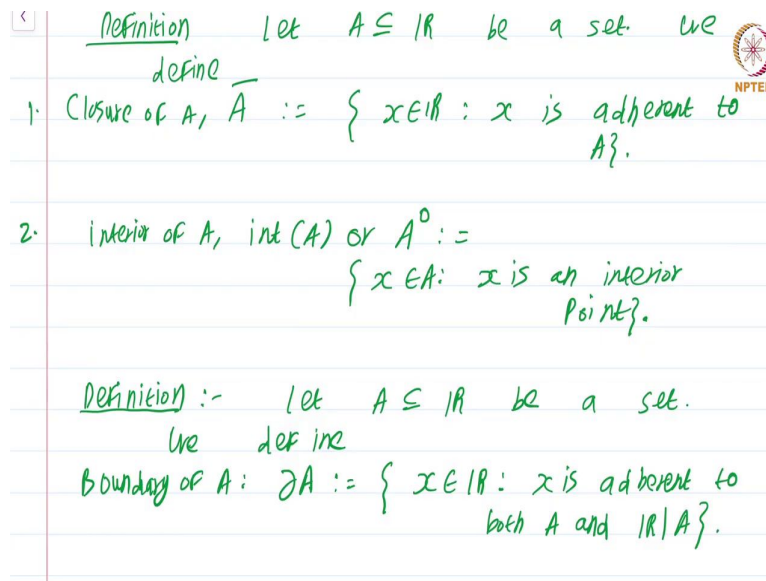 Definition Let A ⊆ ℝ be a set. We
define
NPTEL
1. Closure of A, A̅ := { x∈ℝ : x is adherent to
A}.
2. interior of A, int (A) or A⁰ :=
{ x ∈A: x is an interior
Point}.
Definition :- let A ⊆ ℝ be a set.
We define
Boundary of A: ∂A := { x∈ℝ : x is adherent to
both A and ℝ|A}.